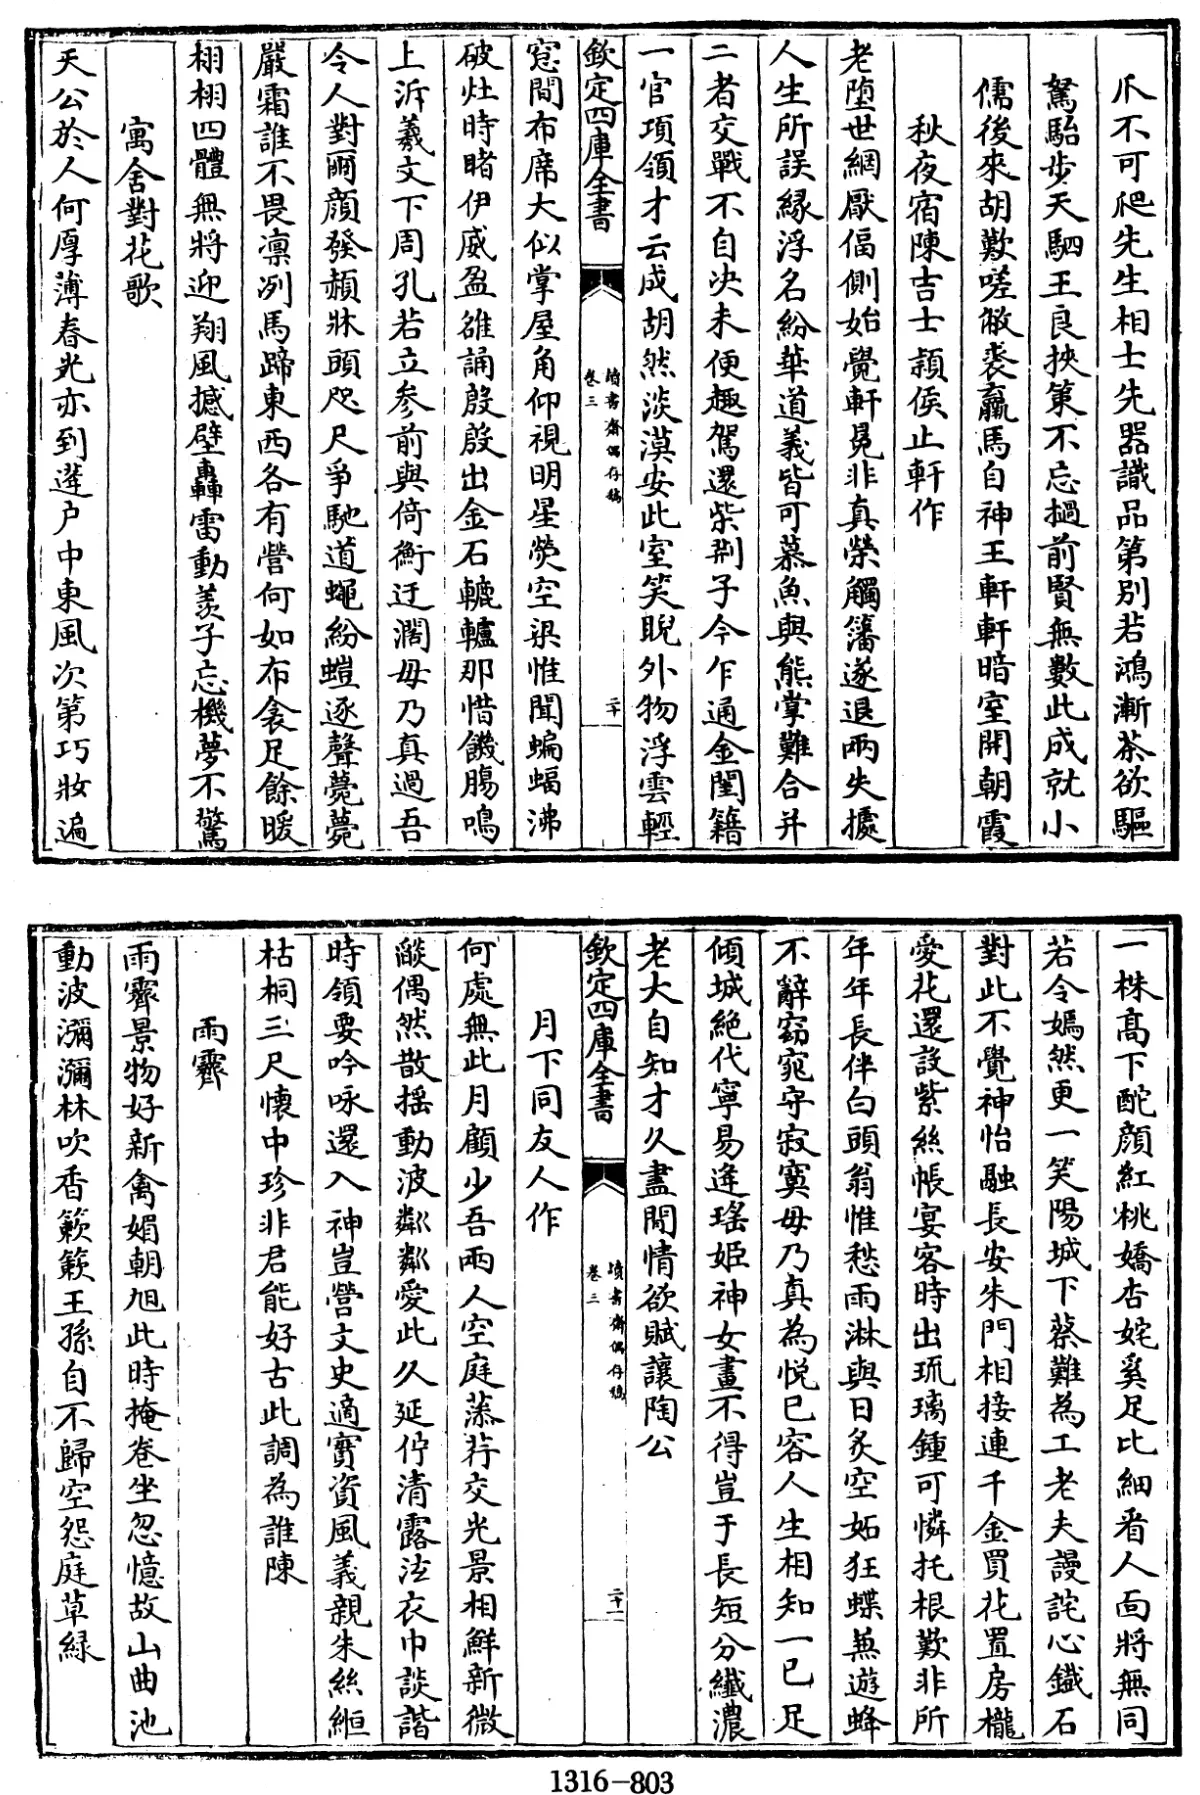 爪不可爬先生相士先器識品第別若鴻漸茶欲驅
駑駘步天駟王良挾策不忘撾前賢無數此成就小
儒後來胡歎嗟敝裘羸馬自神王軒軒暗室開朝霞
秋夜宿陳吉士穎侯止軒作
老墮世網厭偪側始覺軒冕非真榮觸籓遂退兩失據
人生所誤緣浮名紛華道義皆可慕魚與熊掌難合并
二者交戰不自決未便趣駕還柴荆子今乍通金閨籍
一官項領才云成胡然淡漠安此室笑睨外物浮雲輕
欽定四庫全書
讀書齋偶存稿
卷三
二十
窓間布席大似掌屋角仰視明星熒空梁惟聞蝙蝠沸
破灶時睹伊威盈雒誦殷殷出金石轆轤那惜饑腸鳴
上泝羲文下周孔若立参前與倚衡迂濶毋乃真過吾
令人對爾顔發頳牀頭咫尺爭馳道蠅紛螘逐聲薨薨
嚴霜誰不畏凛冽馬蹄東西各有營何如布衾足餘暖
栩栩四體無將迎翔風撼壁轟雷動羨子忘機夢不驚
寓舍對花歌
天公於人何厚薄春光亦到蓬户中東風次第巧妝遍
一株高下酡顔紅桃嬌杏姹奚足比細看人面將無同
若令嫣然更一笑陽城下蔡難為工老夫謾詫心鐵石
對此不覺神怡融長安朱門相接連千金買花置房櫳
愛花還設紫絲帳宴客時出琉璃鍾可憐托根歎非所
年年長伴白頭翁惟愁雨淋與日炙空妬狂蝶兼遊蜂
不辭窈窕守寂寞毋乃真為悅已容人生相知一已足
傾城絶代寧易逢瑤姬神女畫不得豈于長短分纖濃
老大自知才久盡閒情欲賦讓陶公
欽定四庫全書
讀書齋偶存稿
卷三
二十一
月下同友人作
何處無此月顧少吾兩人空庭藻荇交光景相鮮新微
飈偶然散摇動波粼粼愛此久延佇清露泫衣巾談諧
時領要吟咏還入神豈營文史適實資風義親朱絲絙
枯桐三尺懷中珍非君能好古此調為誰陳
雨霽
雨霽景物好新禽媚朝旭此時掩卷坐忽憶故山曲池
動波瀰瀰林吹香簌簌王孫自不歸空怨庭草緑
1316-803